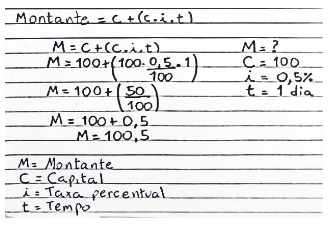 Montante = C + (C.i.t)
M = C + (C.i.t) M = ?
M = 100 + (100.0,5.1/100) C = 100
i = 0,5%
M = 100 + (50/100) t = 1 dia
M = 100 + 0,5
M = 100,5
M = Montante
C = Capital
i = Taxa percentual
t = Tempo